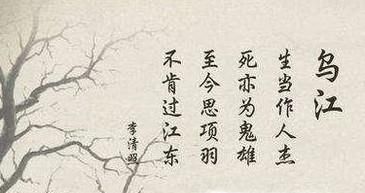 乌江
生当作人杰
死亦为鬼雄
至今思项羽
不肯过江东
李清照